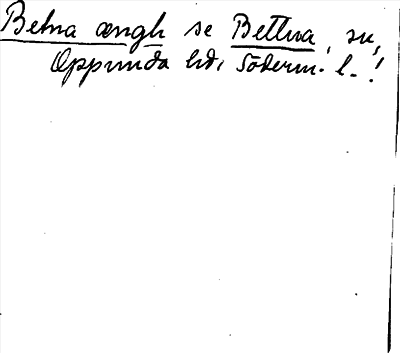 Betna ængh se Bettna, sn,
Oppunda hd, Söderm. l.!